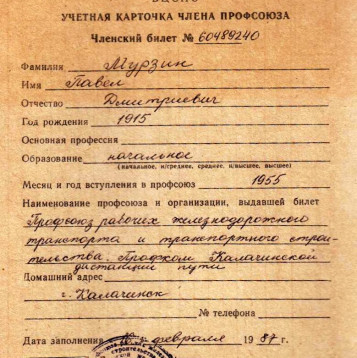 УЧЕТНАЯ КАРТОЧКА ЧЛЕНА ПРОФСОЮЗА
Членский билет № 60489240
Фамилия Мурзин
Имя Павел
Отчество Дмитриевич
Год рождения 1915
Основная профессия
Образование начальное
(начальное, н/среднее, среднее, н/высшее, высшее)
Месяц и год вступления в профсоюз 1955
Наименование профсоюза и организации, выдавшей билет
Профсоюз рабочих железнодорожного
транспорта и транспортного строи-
тельства. Профком Калачинской
дистанции пути
Домашний адрес
г. Калачинск
№ телефона
Дата заполнения февраля 1987 г.